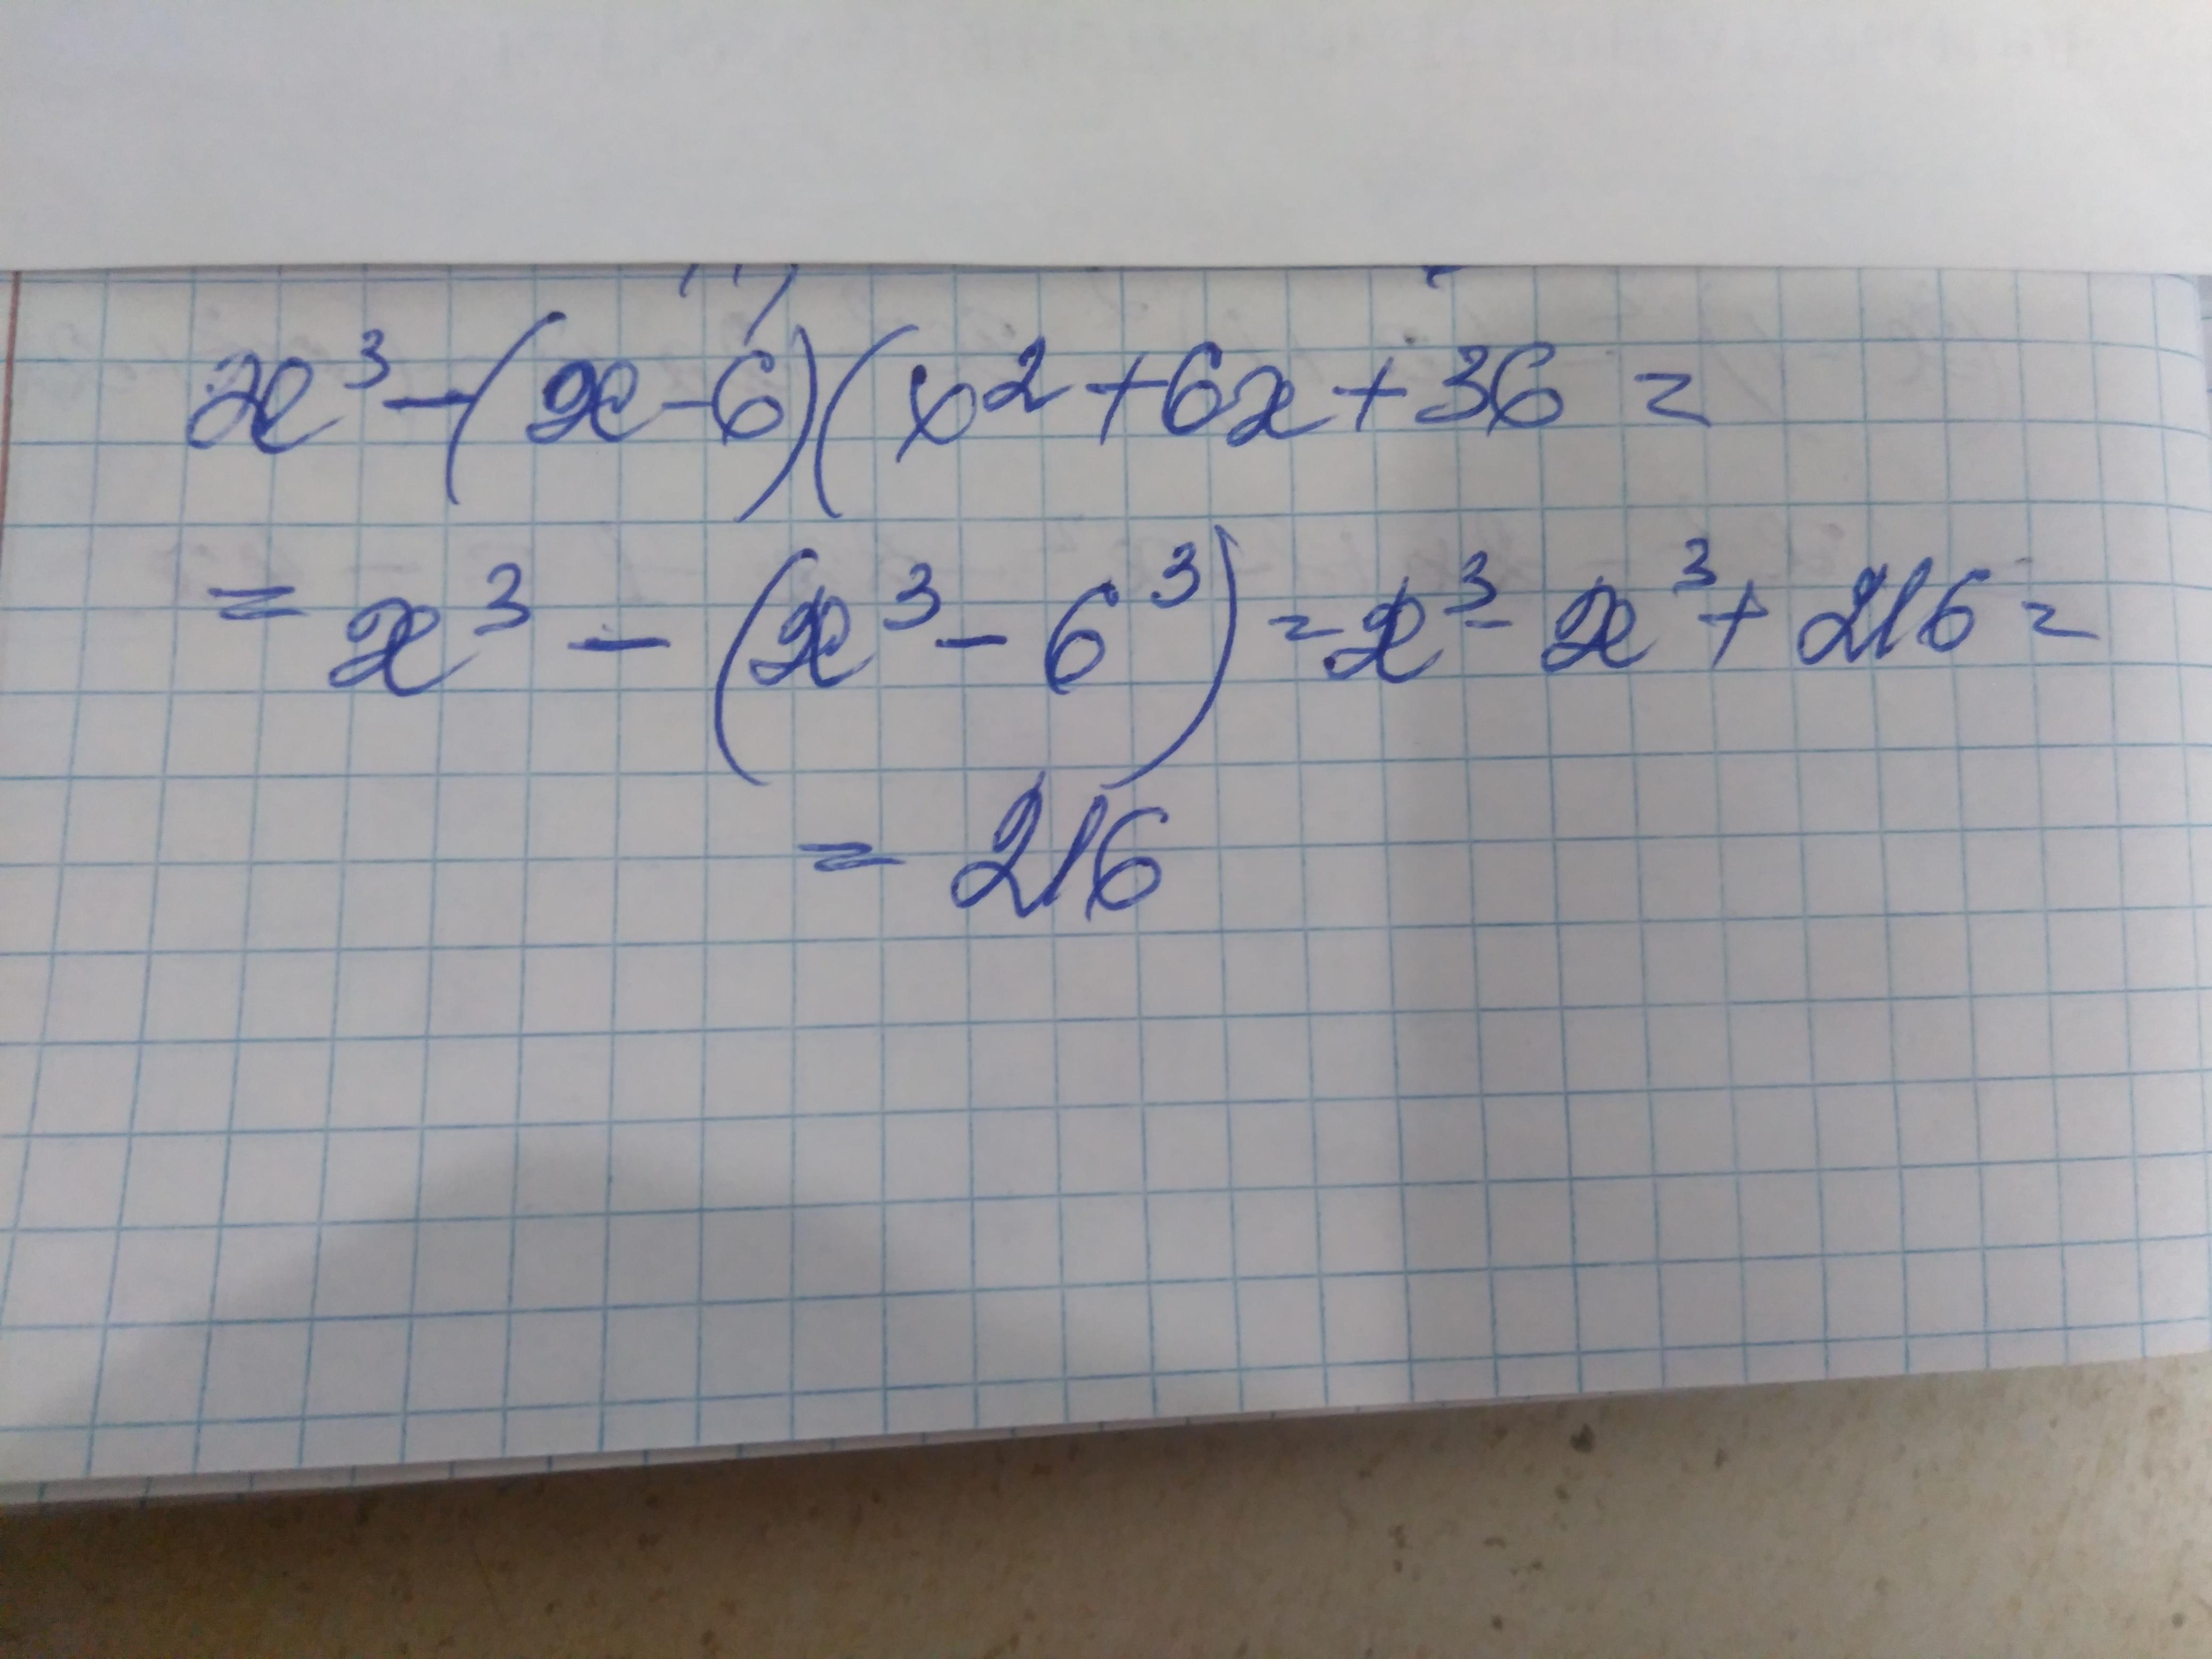 x³-(x-6)(x²+6x+36=
=x³-(x³-6³)=x³-x³+216=
=216